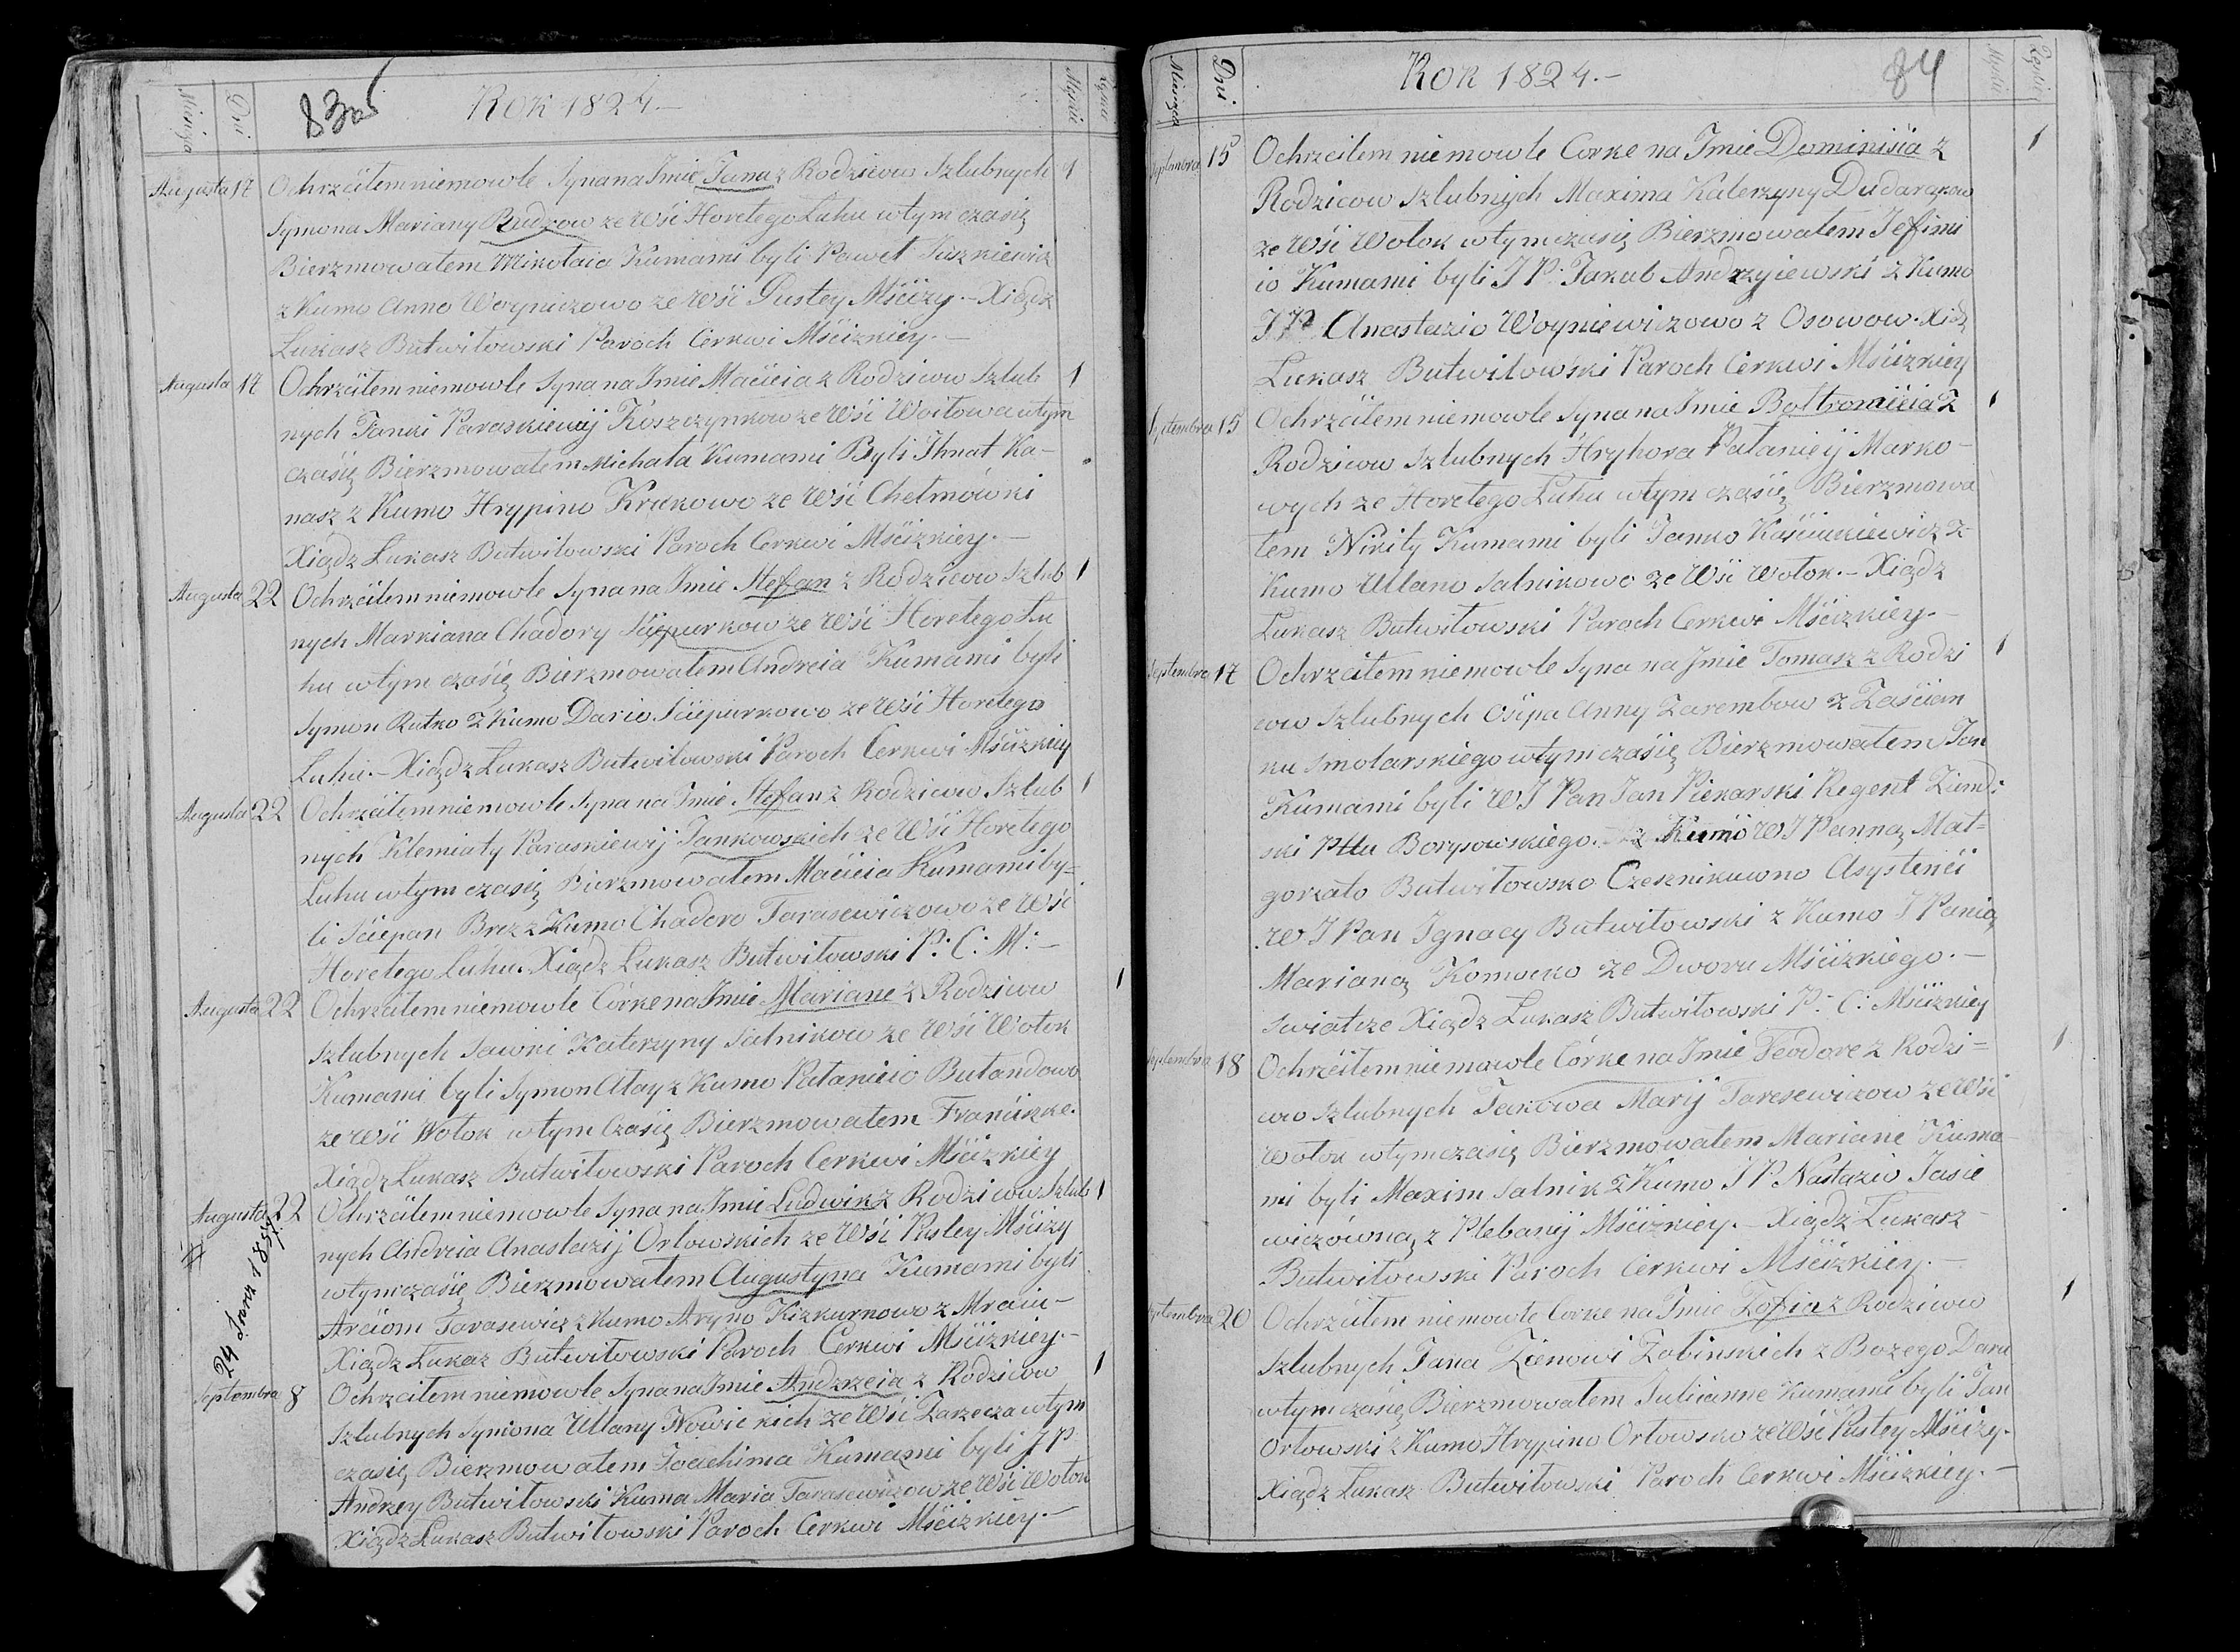 Miesiąca Dni 83 Rok 1824.— Męskie Żęnskie
Augusta 17 Ochrzciłem niemowle Syna na Imie Jana z Rodzicow Szlubnych 1
Symona Maryany Rudzow ze wśi Horełego Luhu w tym czasię
Bierzmowałem Mikołaia Kumami byli Paweł Juszkiewicz
z Kumo Anno Woyniczowo ze wśi Pustey Mścizy.— Xiądz
Łukasz Butwiłowski Paroch Cerkwi Mścizkiey.—
Augusta 17 Ochrzciłem niemowle Syna na Imie Macieia z Rodzicow Szlub 1
nych Janki Paraskiewij Koszczynkow ze wśi Woiłowa w tym
czasię Bierzmowałem Michała Kumami Byli Ihnat Ka-
nasz z Kumo Hrypino Krukowo ze wśi Chełmówki
Xiądz Łukasz Butwiłowski Paroch Cerkwi Mścizkiey.—
Augusta 22 Ochrzciłem niemowle Syna na Imie Stefan z Rodzicow Szlub 1
nych Markiana Chadory Sciepurkow ze wśi Horełego Lu
hu w tym czasię Bierzmowałem Andreia Kumami byli
Symon Rutko z Kumo Dario Sciepurkowo ze wśi Horełego
Luhu.— Xiądz Łukasz Butwiłowski Paroch Cerkwi Mścizkiey
Augusta 22 Ochrzciłem niemowle Syna na Imie Stefan z Rodzicow Szlub 1
nych Klemiaty Paraskiewij Jankowskich ze wśi Horełego
Luhu w tym czasię Bierzmowałem Macieia Kumami by=
li Sciepan Brez z Kumo Chadoro Tarasewiczowo ze wśi
Horełego Luhu. Xiądz Łukasz Butwiłowski P: C: M:—
Augusta 22 Ochrzciłem niemowle Córke na Imie Mariane z Rodzicow 1
Szlubnych Sawki Katerzyny Salnikow ze wśi Wołok
Kumami byli Symon Ałay z Kumo Pałanieio Bułandowo
ze wśi Wołok w tym Czasię Bierzmowałem Franciszke.
Xiądz Łukasz Butwiłowski Paroch Cerkwi Mścizkiey
Augusta 22 Ochrzciłem niemowle Syna na Imie Ludwik z Rodzicow Szlub 1
nych Andreia Anastazij Orłowskich ze wśi Pustey Mścizy
w tym czasię Bierzmowałem Augustyna Kumami byli
Arciom Tarasewicz z Kumo Aryno Kizkurnowo z Mraiu-
Xiądz Łukasz Butwiłowski Paroch Cerkwi Mścizkiey.—
Septembra 8 Ochrzciłem niemowle Syna na Imie Andrzeia z Rodzicow 1
Szlubnych Symona Ullany Nowickich ze wśi Zarzecza w tym
czasię Bierzmowałem Joachima Kumami byli J P
Andrzey Butwiłowski Kuma Maria Tarasewiczow ze wśi Wołok
Xiądz Łukasz Butwiłowski Paroch Cerkwi Mścizkiey.—
Miesiąca Dni Rok 1824.— 84 Męskie Żęnskie
Septembra 15 Ochrzciłem niemowle Corke na Imie Dominisia z 1
Rodzicow Szlubnych Maxima Katerzyny Dudarąkow
ze wśi Wołok w tym czasię Bierzmowałem Jefimi
io Kumami byli J P: Jakub Andrzyiewski z Kumo
J P Anastazio Woyniewiczowo z Osowow. Xiądz
Łukasz Butwiłowski Paroch Cerkwi Mścizkiey
Septembra 15 Ochrzciłem niemowle Syna na Imie Bałtromieia z 1
Rodzicow Szlubnych Hryhora Pałanieij Marko-
wych ze Horełego Luhu w tym czasię Bierzmowa
łem Nikity Kumami byli Jamko Kaściukiewicz z
Kumo Ullano Salnikowo ze wśi Wołok.— Xiądz
Łukasz Butwiłowski Paroch Cerkwi Mścizkiey.—
Septembra 17 Ochrzciłem niemowle Syna na Imie Tomasz z Rodzi 1
cow Szlubnych Osipa Anny Zarembow z Zaścian
ku Smolarskiego w tym czasię Bierzmowałem Jan
Kumami byli W J Pan Jan Piekarski Regent Ziemi:
ski Pttu Borysowskiego. z Kumo W J Panną Mał=
gorzato Butwiłowsko Czesznikuwno Asystenci
W J Pan Ignacy Butwiłowski z Kumo J Panią
Marianą Komocko ze Dworu Mścizkiego.—
Swiatcze Xiądz Łukasz Butwiłowski P: C: Mścizkiey
Septembra 18 Ochrzciłem niemowle Córke na Imie Teodore z Rodzi= 1
cow Szlubnych Jakowa Marij Taresewiczow ze wśi
Wołok w tym czasię Bierzmowałem Mariane Kuma
mi byli Maxim Salnik z Kumo J P Nastazio Jasie
wiczówną z Plebanij Mścizkiey.— Xiądz Łukasz
Butwiłowski Paroch Cerkwi Mścizkiey.—
Septembra 20 Ochrzciłem niemowle Corke na Imie Zofia z Rodzicow 1
Szlubnych Jana Zienowi Zabinskich z Bożego Daru
w tym czasię Bierzmowałem Julianne Kumami byli Jan
Orłowski z Kumo Hrypino Orłowsko ze wśi Pustey Mścizy.
Xiądz Łukasz Butwiłowski Paroch Cerkwi Mścizkiey.—